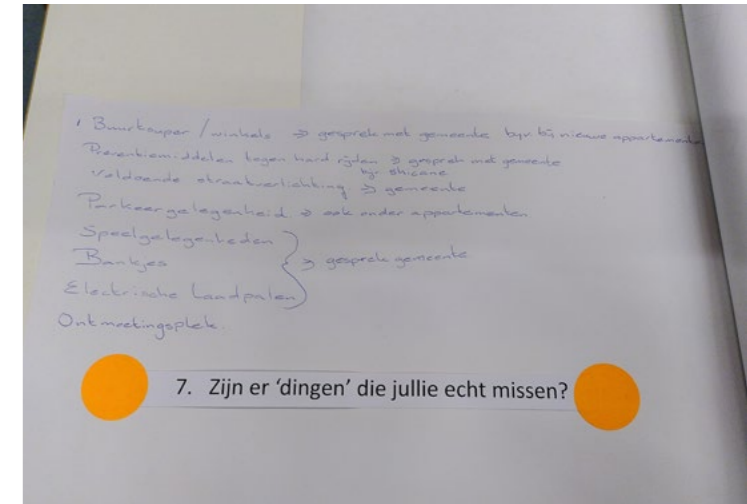 Buurtsuper / winkels => gesprek met gemeente bijv bij nieuwe appartementen
Preventiemiddelen tegen hard rijden => gesprek met gemeente
bijv shicane
Voldoende straatverlichting => gemeente
Parkeergelegenheid => ook onder appartementen
Speelgelegenheden
Bankjes => gesprek gemeente
Electrische Laadpalen
Ontmoetingsplek.
7. Zijn er ‘dingen’ die jullie echt missen?